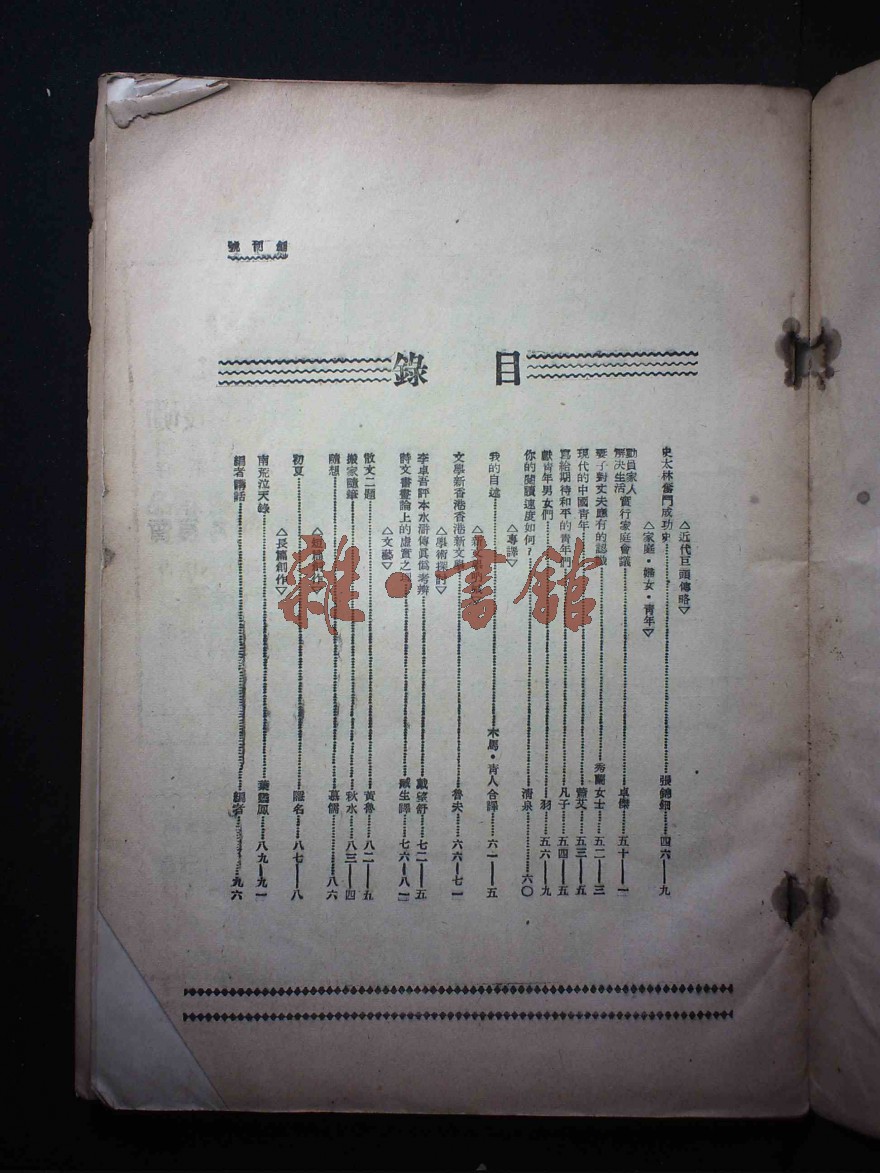 創刊號
目錄
△近代巨頭傳略▽
史太林奮鬥成功史 張鶴鈿 四六—九
△家庭·婦女·青年▽
動員家人實行家庭會議
解決生活 卓傑 五十—一
妻子對丈夫應有的認識 秀蘭女士 五二—三
現代的中國青年 蕭艾 五三—五
寫給期待和平的青年們 凡子 五四—五
獻青年男女們 羽 五六—九
你的閱讀速度如何? 清泉 六〇
△專譯▽
我的自述 木馬·青人合譯 六一—五
文學新香港香港新文學 魯夫 六六—七一
△學術探討▽
李卓吾評本水滸傳真僞考辨 戴望舒 七二—五
詩文書畫論上的虛實之 臧生譯 七六—八一
△文藝▽
散文二題 黃魯 八二—五
搬家隨筆 秋水 八三—四
隨想 慕儒 八六
△短篇創作▽
初夏 諲名 八七—八
△長篇創作▽
南荒泣天錄 葉靈鳳 八九—九一
編者講話 編者 九六
雜·書館